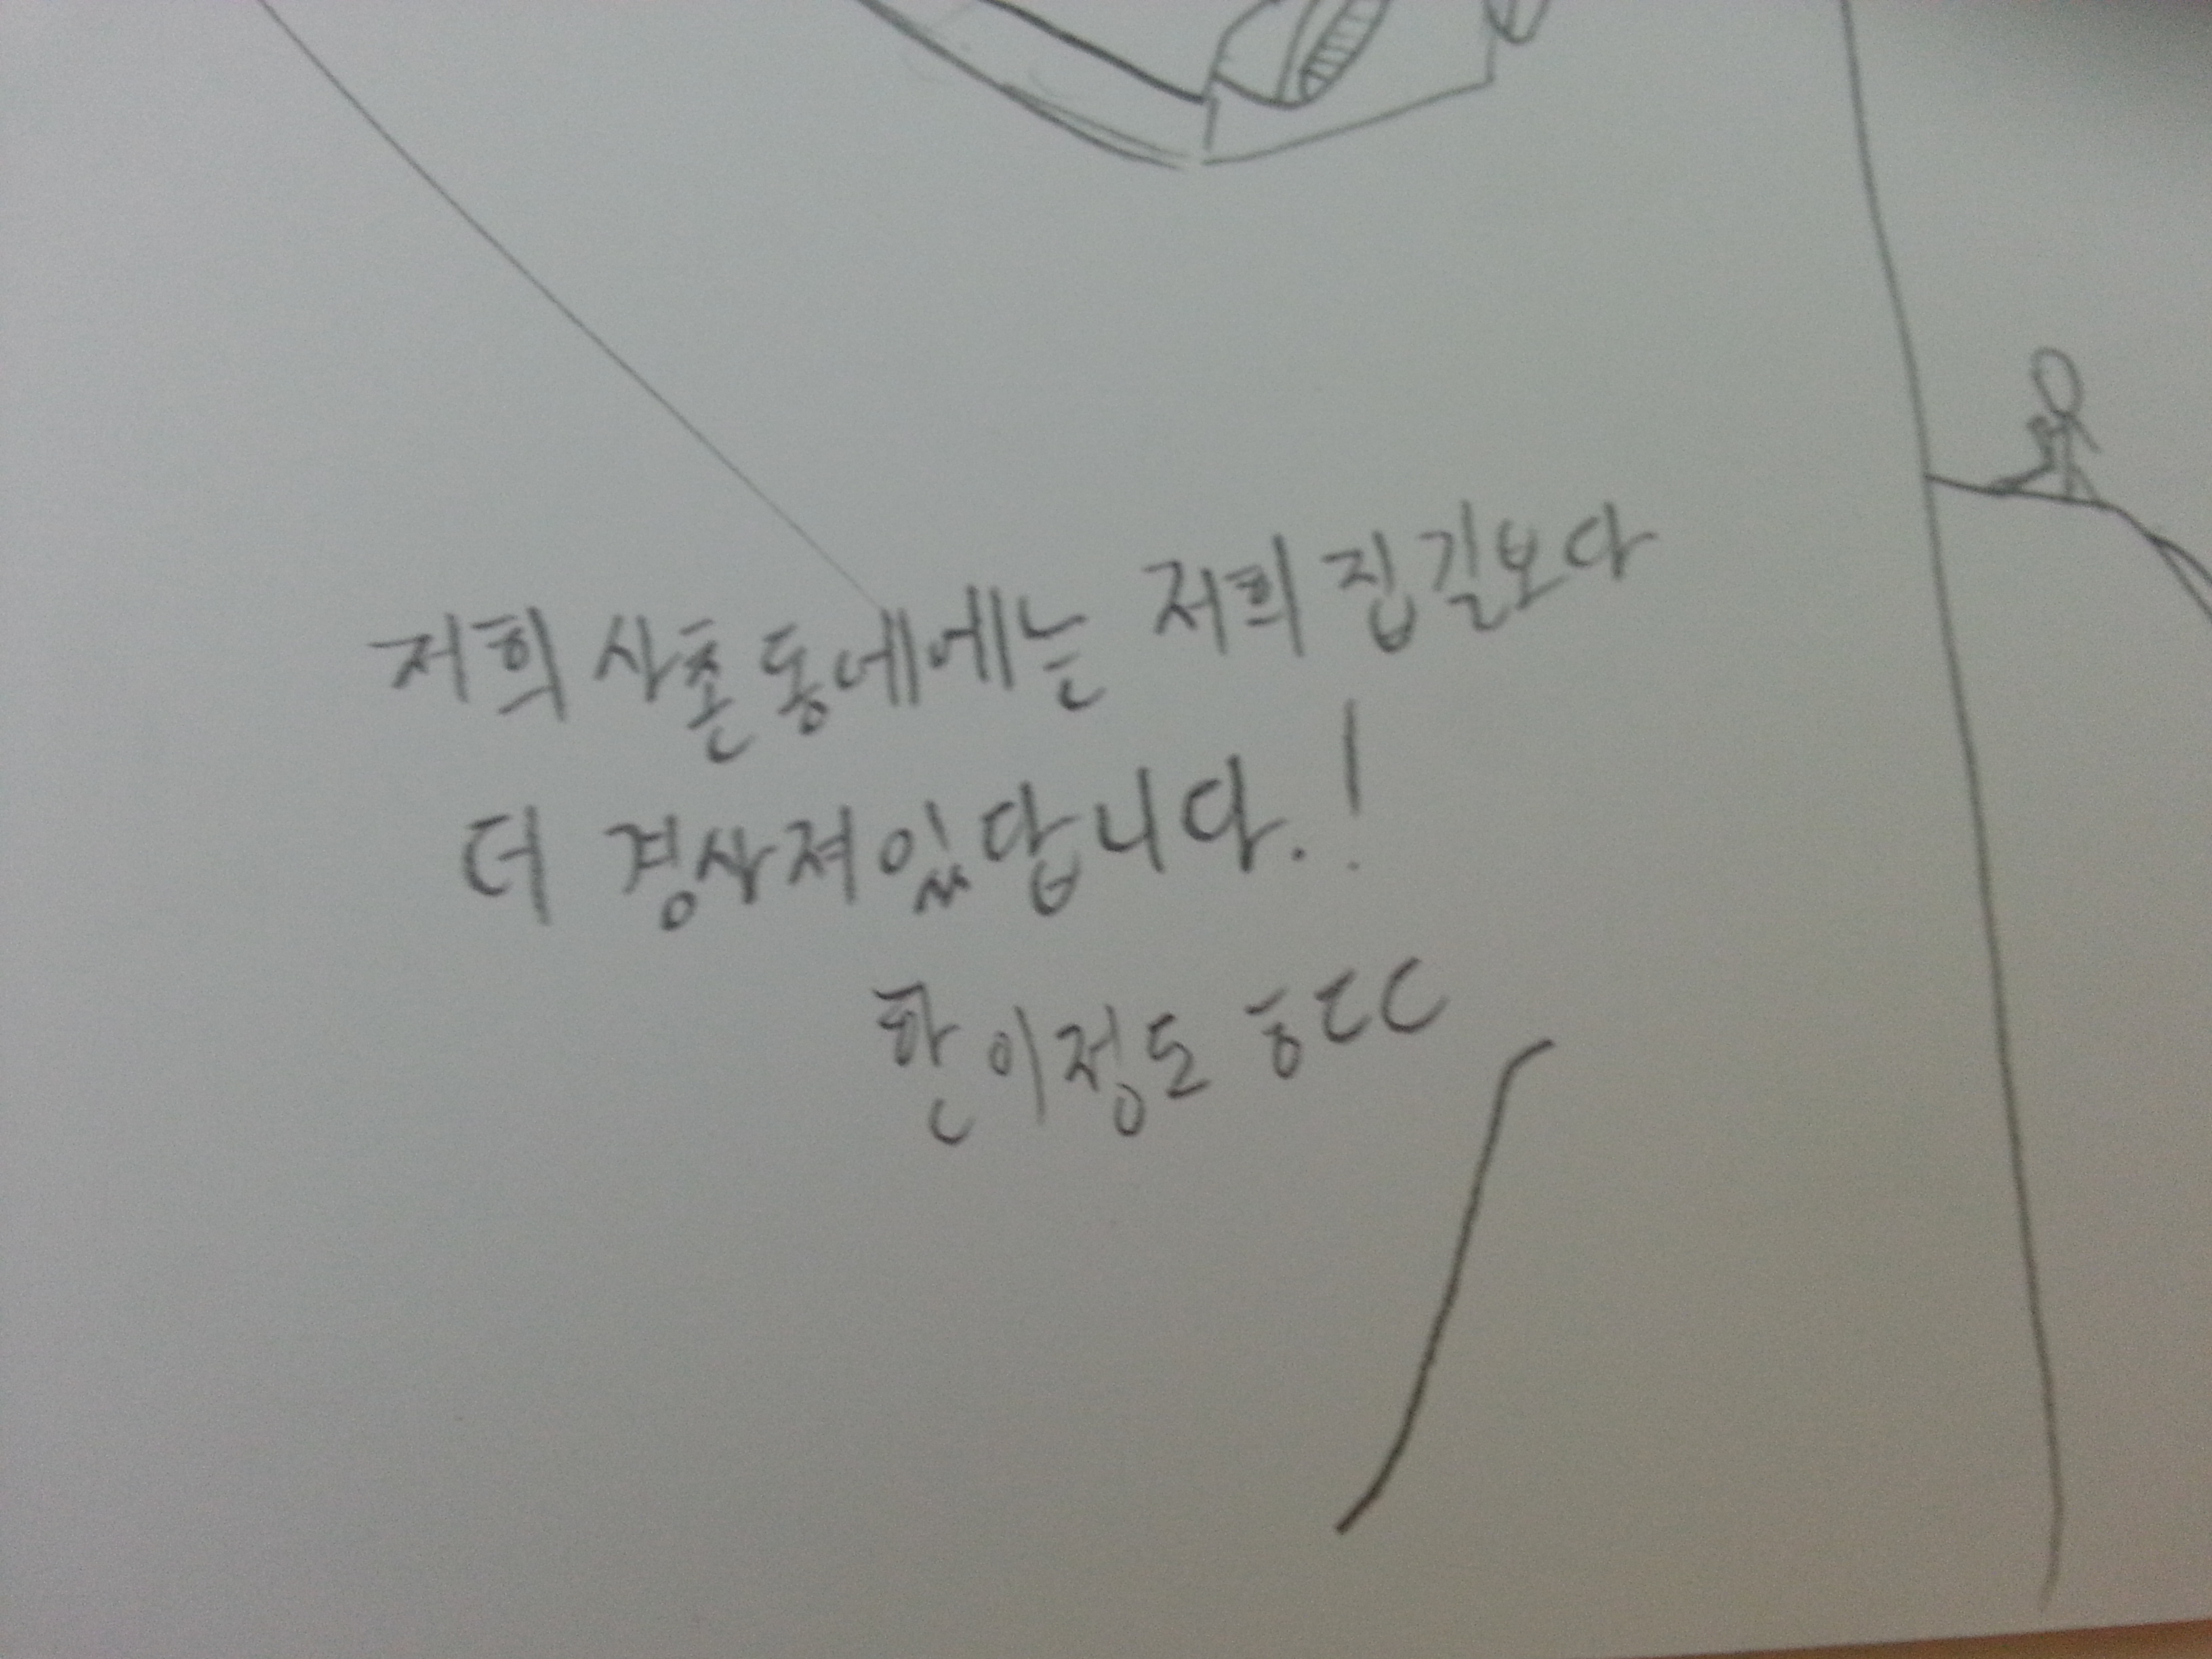 저희 사촌동네에는 저희 집길보다
더 경사져있답니다.!
한 이정도 ㅎㄷㄷ